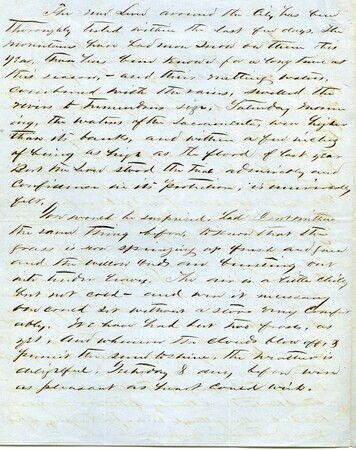 The new Levee around the City has been
thoroughly tested within the last few days. The
mountains have had more snow on them this
year, than has been known for a long time at
this season, - and their melting waters,
combined with the rains, swelled the
rivers to tremendous size. Saturday morn-
ing, the waters of the Sacramento, were higher
than its banks, and within a few inches
of being as high as the flood of last year
But the Levee stood the test admirably and
confidence in its protection, is universally
felt.
You would be surprised had I not written
the same thing before, to know that the
grass is now springing up fresh and green
and the willow buds are bursting out
into tender leaves. The air is a little chilly
but not cold - and were it necessary
one could sit without a stove very comfort-
ably. We have had but two frosts, as
yet, and whenever the clouds blow off, &
permit the sun to shine, the weather is
delightful. Yesterday & day before were
as pleasant as heart could wish.